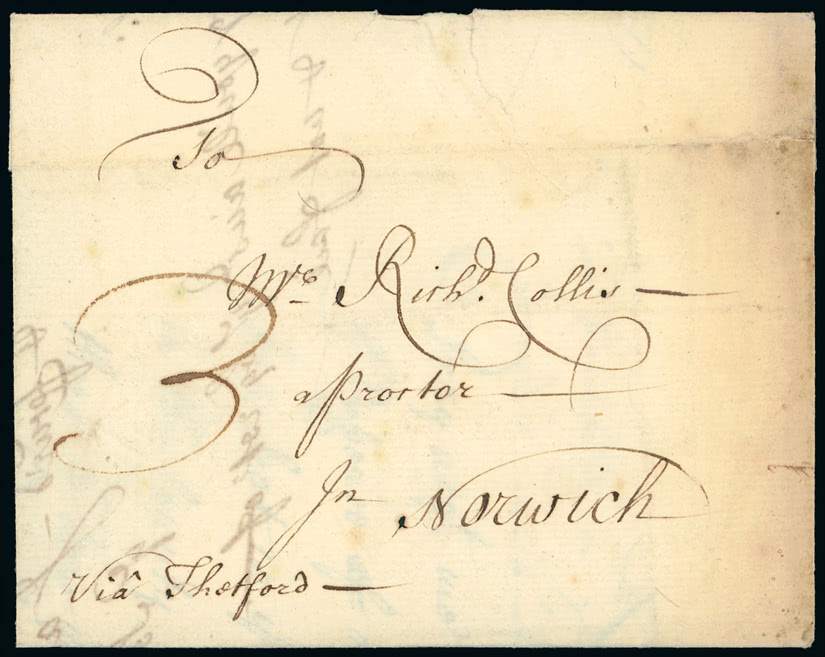 To
Mr Richd. Collis
3
a Proctor
In Norwich
Viâ Thetford